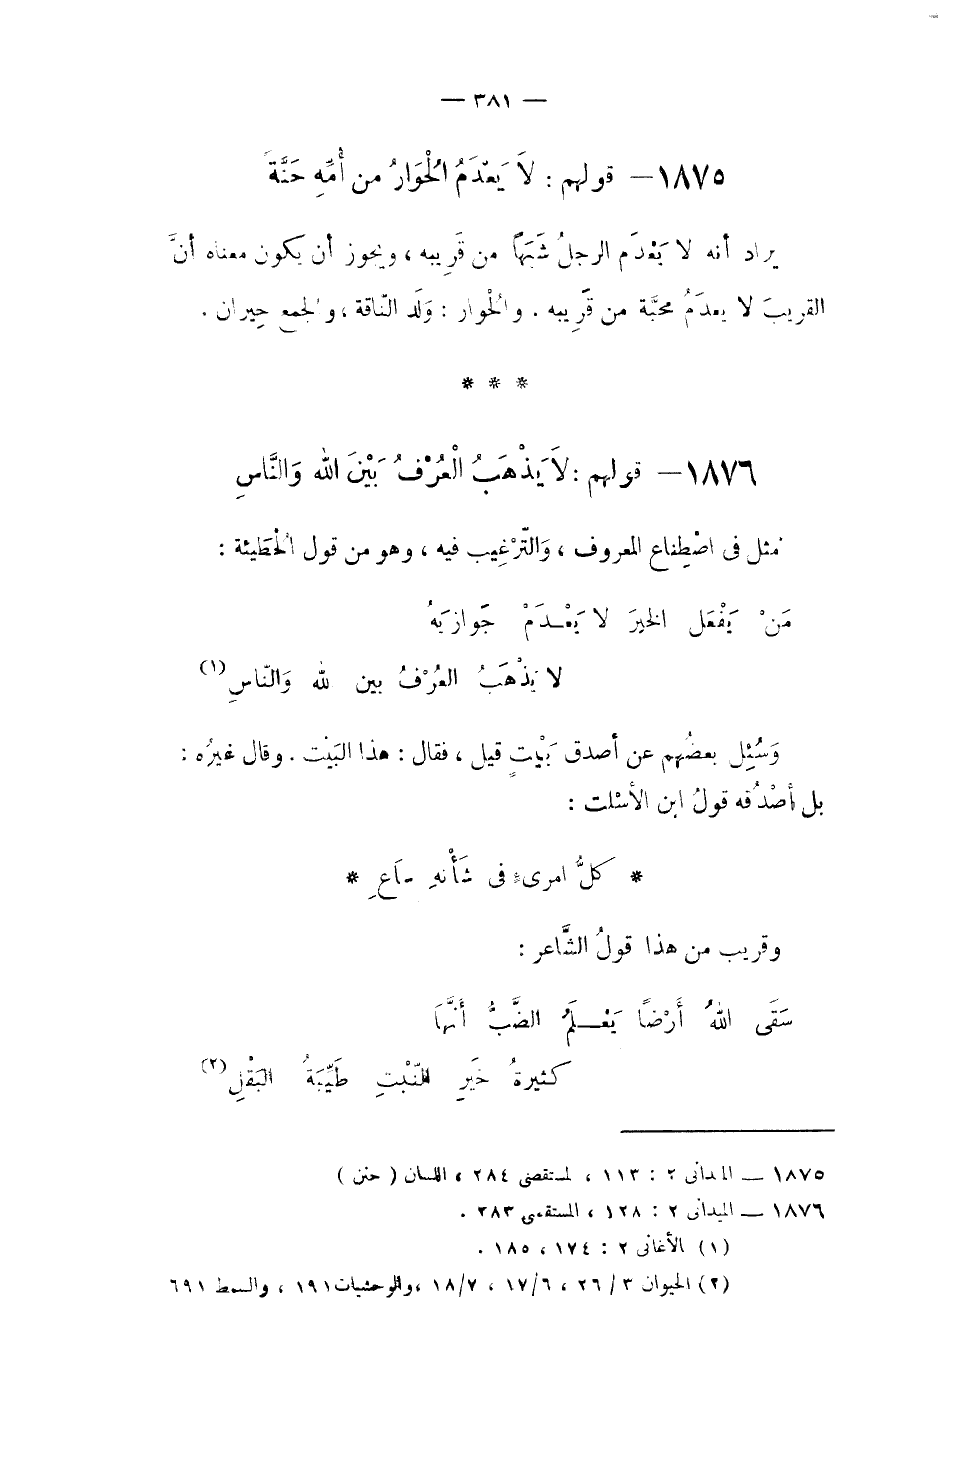 — ٣٨١ —
١٨٧٥ — قولهم : لاَ يَعْدَمُ الْحُوَارُ من أُمِّهِ حَنَّةً
يراد أنه لا يَعْدَم الرجلُ شَبَهًا من قَرِيبه ، ويجوز أن يكون معناه أنَّ
القريبَ لا يعدَمُ محبَّة من قَرِيبه . والحُوار : وَلَد النّاقة ، والجمع حِيران .
* * *
١٨٧٦ — قولهم : لاَ يَذْهَبُ الْعُرْفُ بَيْنَ الله وَالنَّاسِ
مثل فى اصْطِناع المعروف ، وَالتَّرْغِيب فيه ، وهو من قول الحُطَيئة :
مَنْ يَفْعَل الخيرَ لا يَعْدَمْ جَوازِيَهُ
لا يَذْهَبُ العُرْفُ بين لله وَالنّاسِ (١)
وَسُئِل بعضُهم عن أصدق بَيْتٍ قيل ، فقال : هذا البَيْت . وقال غيرُه :
بل أصْدَقُه قولُ ابن الأسْلت :
* كلُّ امرىءٍ فى شَأْنهِ سَاعِ *
وقريب من هذا قولُ الشَّاعر :
سَقَى اللهُ أَرْضًا يَعْلَمُ الضَّبُّ أنَّهَا
كثيرةُ خَيرِ النَّبْتِ طَيِّبَةُ البَقْلِ (٢)
١٨٧٥ — الميدانى ٢ : ١١٣ ، لمستقصى ٢٨٤ ، اللسان ( حنن )
١٨٧٦ — الميدانى ٢ : ١٢٨ ، المستقصى ٢٨٣ .
(١) الأغانى ٢ : ١٧٤ ، ١٨٥ .
(٢) الحيوان ٣ / ٢٦ ، ١٧/٦ ، ١٨/٧ ، والوحشيات ١٩١ ، والسمط ٦٩١